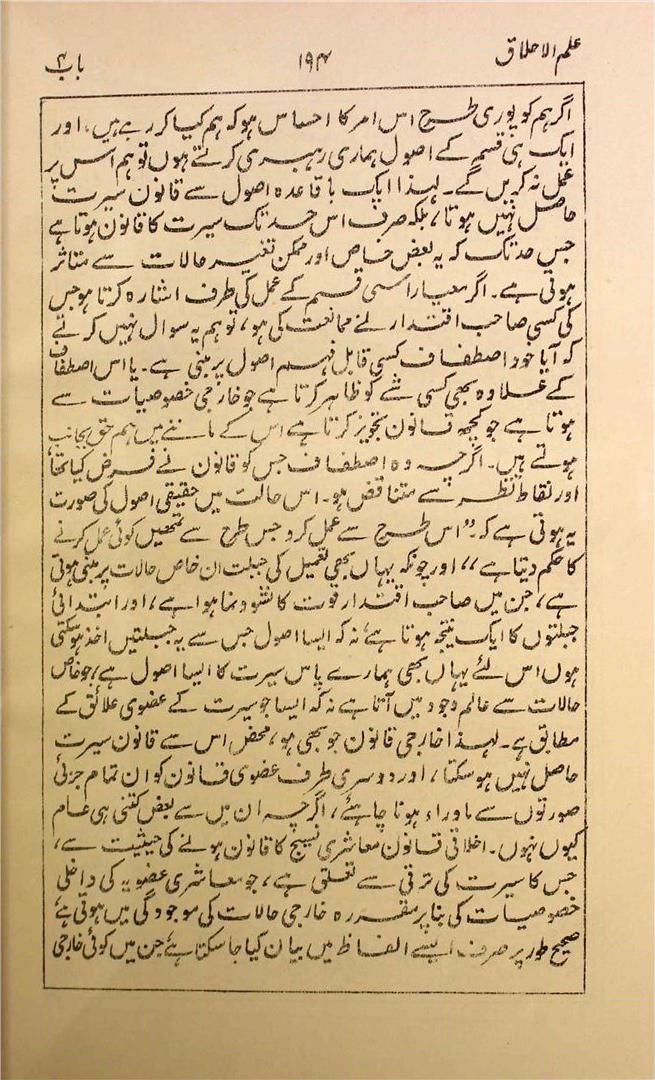 علم الاخلاق
۱۹۴
باب ۴
اگر ہم کو پوری طرح اس امر کا احساس ہو کہ ہم کیا کر رہے ہیں، اور
ایک ہی قسم کے اصول ہماری رہبری کرتے ہوں تو ہم اس پر
عمل نہ کریں گے۔ لہذا ایک باقاعدہ اصول سے قانون سیرت
حاصل نہیں ہوتا، بلکہ صرف اس حد تک سیرت کا قانون ہوتا ہے
جس حد تک کہ یہ بعض خاص اور ممکن تغیر حالات سے متاثر
ہوتی ہے۔ اگر معیار اسی قسم کے عمل کی طرف اشارہ کرتا ہو جس
کی کسی صاحب اقتدار نے ممانعت کی ہو، تو ہم یہ سوال نہیں کرتے
کہ آیا خود اصطفاف کسی قابل فہم اصول پر مبنی ہے۔ یا اس اصطفاف
کے علاوہ بھی کسی شے کو ظاہر کرتا ہے جو خارجی خصوصیات سے
ہوتا ہے جو کچھ قانون تجویز کرتا ہے اس کے ماننے میں ہم حق بجانب
ہوتے ہیں۔ اگرچہ وہ اصطفاف جس کو قانون نے فرض کیا تھا
اور نقاط نظر سے متناقض ہو۔ اس حالت میں حقیقی اصول کی صورت
یہ ہوتی ہے کہ۔ ’’اس طرح سے عمل کرو جس طرح سے تمھیں کوئی عمل کرنے
کا حکم دیتا ہے‘‘، اور چونکہ یہاں بھی تعمیل کی جبلت ان خاص حالات پر مبنی ہوتی
ہے، جن میں صاحب اقتدار قوت کا نشوونما ہوا ہے، اور ابتدائی
جبلتوں کا ایک نتیجہ ہوتا ہے، نہ کہ ایسا اصول جس سے یہ جبلتیں اخذ ہو سکتی
ہوں اس لئے یہاں بھی ہمارے پاس سیرت کا ایسا اصول ہے، جو خاص
حالات سے عالم وجود میں آتا ہے نہ کہ ایسا جو سیرت کے عضوی علائق کے
مطابق ہے۔ لہذا خارجی قانون جو بھی ہو، محض اس سے قانون سیرت
حاصل نہیں ہو سکتا، اور دوسری طرف عضوی قانون کو ان تمام جزئی
صورتوں سے ماوراء ہونا چاہئے، اگرچہ ان میں سے بعض کتنی ہی عام
کیوں نہوں۔ اخلاقی قانون معاشری نسیج کا قانون ہونے کی حیثیت سے،
جس کا سیرت کی ترقی سے تعلق ہے، جو معاشری عضویہ کی داخلی
خصوصیات کی بنا پر مقررہ خارجی حالات کی موجودگی میں ہوتی ہے
صحیح طور پر صرف ایسے الفاظ میں بیان کیا جا سکتا ہے جن میں کوئی خارجی